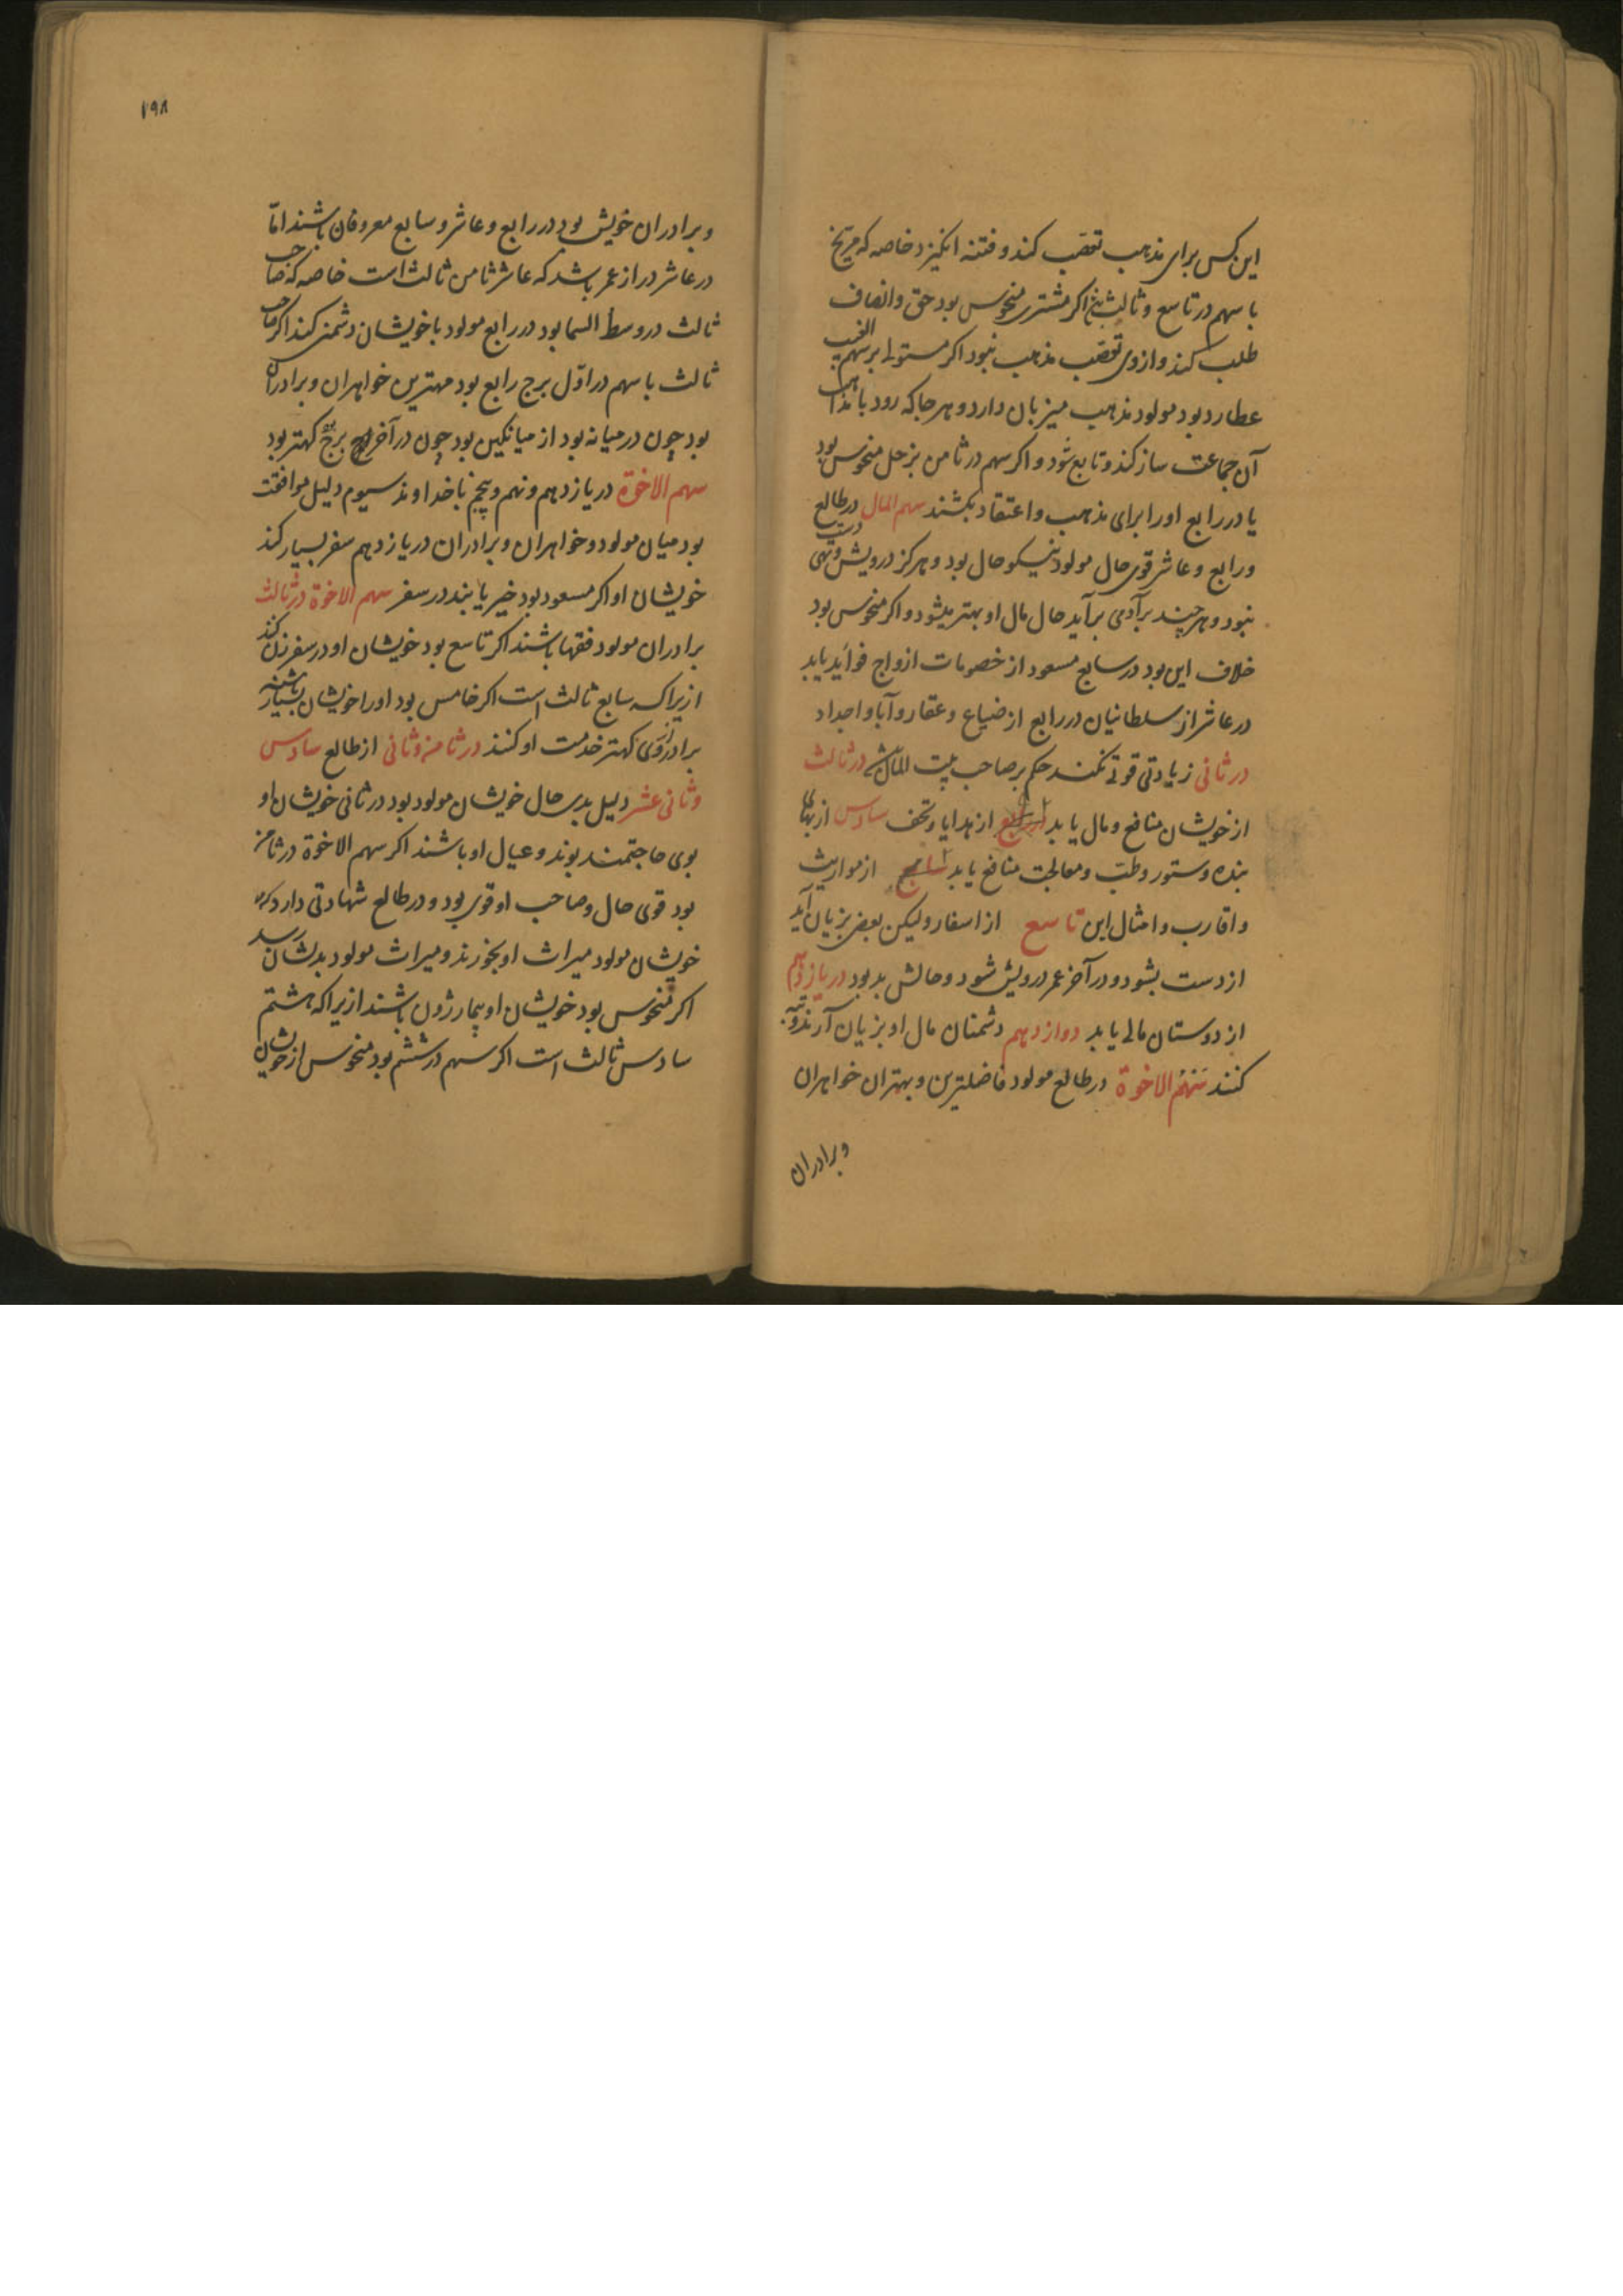 این کس برای مذهب تعصّب کند و فتنه انکیزد خاصه که مریخ
با سهم در تاسع و ثالث اکر مشتری منحوس بود حق و انصاف
طلب کند و از وی تعصّب مذهب نبود اکر مستولی بر سهم الغیب
عطارد بود مولود مذهب میزبان دارد و هر جا که رود با مذاهب
آن جماعت ساز کند و تابع شود و اکر سهم در ثامن بزحل منحوس بود
یا در رابع او را برای مذهب و اعتقاد بکشند سهم المال در طالع
و رابع و عاشر قوی حال مولود نیکو حال بود و هرکز درویش و تهی دست
نبود و هر چند برآدمی برآید حال مال او بهتر میشود و اکر منحوس بود
خلاف این بود در سابع مسعود از خصومات ازواج فواید یابد
در عاشر از سلطانیان در رابع از ضیاع و عقار و آبا و اجداد
در ثانی زیادتی قوتی نکند حکم بر صاحب بیت المال در ثالث
از خویشان منافع و مال یابد از هدایا و تحف سادس از بهای
بنده و ستور و طبّ و معالجت منافع یابد از مواریث
و اقارب و امثال این تاسع از اسفار ولیکن بعضی بزیان آید
از دست بشود و در آخر عمر درویش شود و حالش بد بود در یازدهم
از دوستان مالی یابد دوازدهم دشمنان مال او بزیان آرند و
کنند سَهْمُ الاخوة در طالع مولود فاضلترین و بهتران خواهران
و برادران
۱۹۸
و برادران خویش بود در رابع و عاشر و سابع معروفان باشند امّا
در عاشر دراز عمر باشد که عاشر ثامن ثالث است خاصه که صاحب
ثالث در وسط السما بود در رابع مولود با خویشان دشمنی کند اکر صاحب
ثالث با سهم در اوّل برج رابع بود مهترین خواهران و برادران
بود چون در میانه بود از میانکین بود چون در آخر برج کهتر بود
سهم الاخوة در یازدهم و نهم و پنجم با خداوند سیوم دلیل موافقت
بود میان مولود و خواهران و برادران در یازدهم سفر بسیار کند
خویشان او اکر مسعود بود خیر یابند در سفر سهم الاخوة در ثالث
برادران مولود فقها باشند اکر تاسع بود خویشان او در سفر زن کند
ازیراکه سابع ثالث است اکر خامس بود او را خویشان بسیار باشند
برادر کهتر خدمت او کنند در ثامن و ثانی از طالع سادس
و ثانی عشر دلیل بدی حال خویشان مولود بود در ثانی خویشان او
بوی حاجتمند بوند و عیال او باشند اکر سهم الاخوة در ثامن
بود قوی حال و صاحب او قوی بود و در طالع شهادتی دارد که
خویشان مولود میراث او بخورند و میراث مولود بدیشان رسد
اکر منحوس بود خویشان او بیمار باشند ازیراکه هشتم
سادس ثالث است اکر سهم در ششم بود منحوس از خویشان